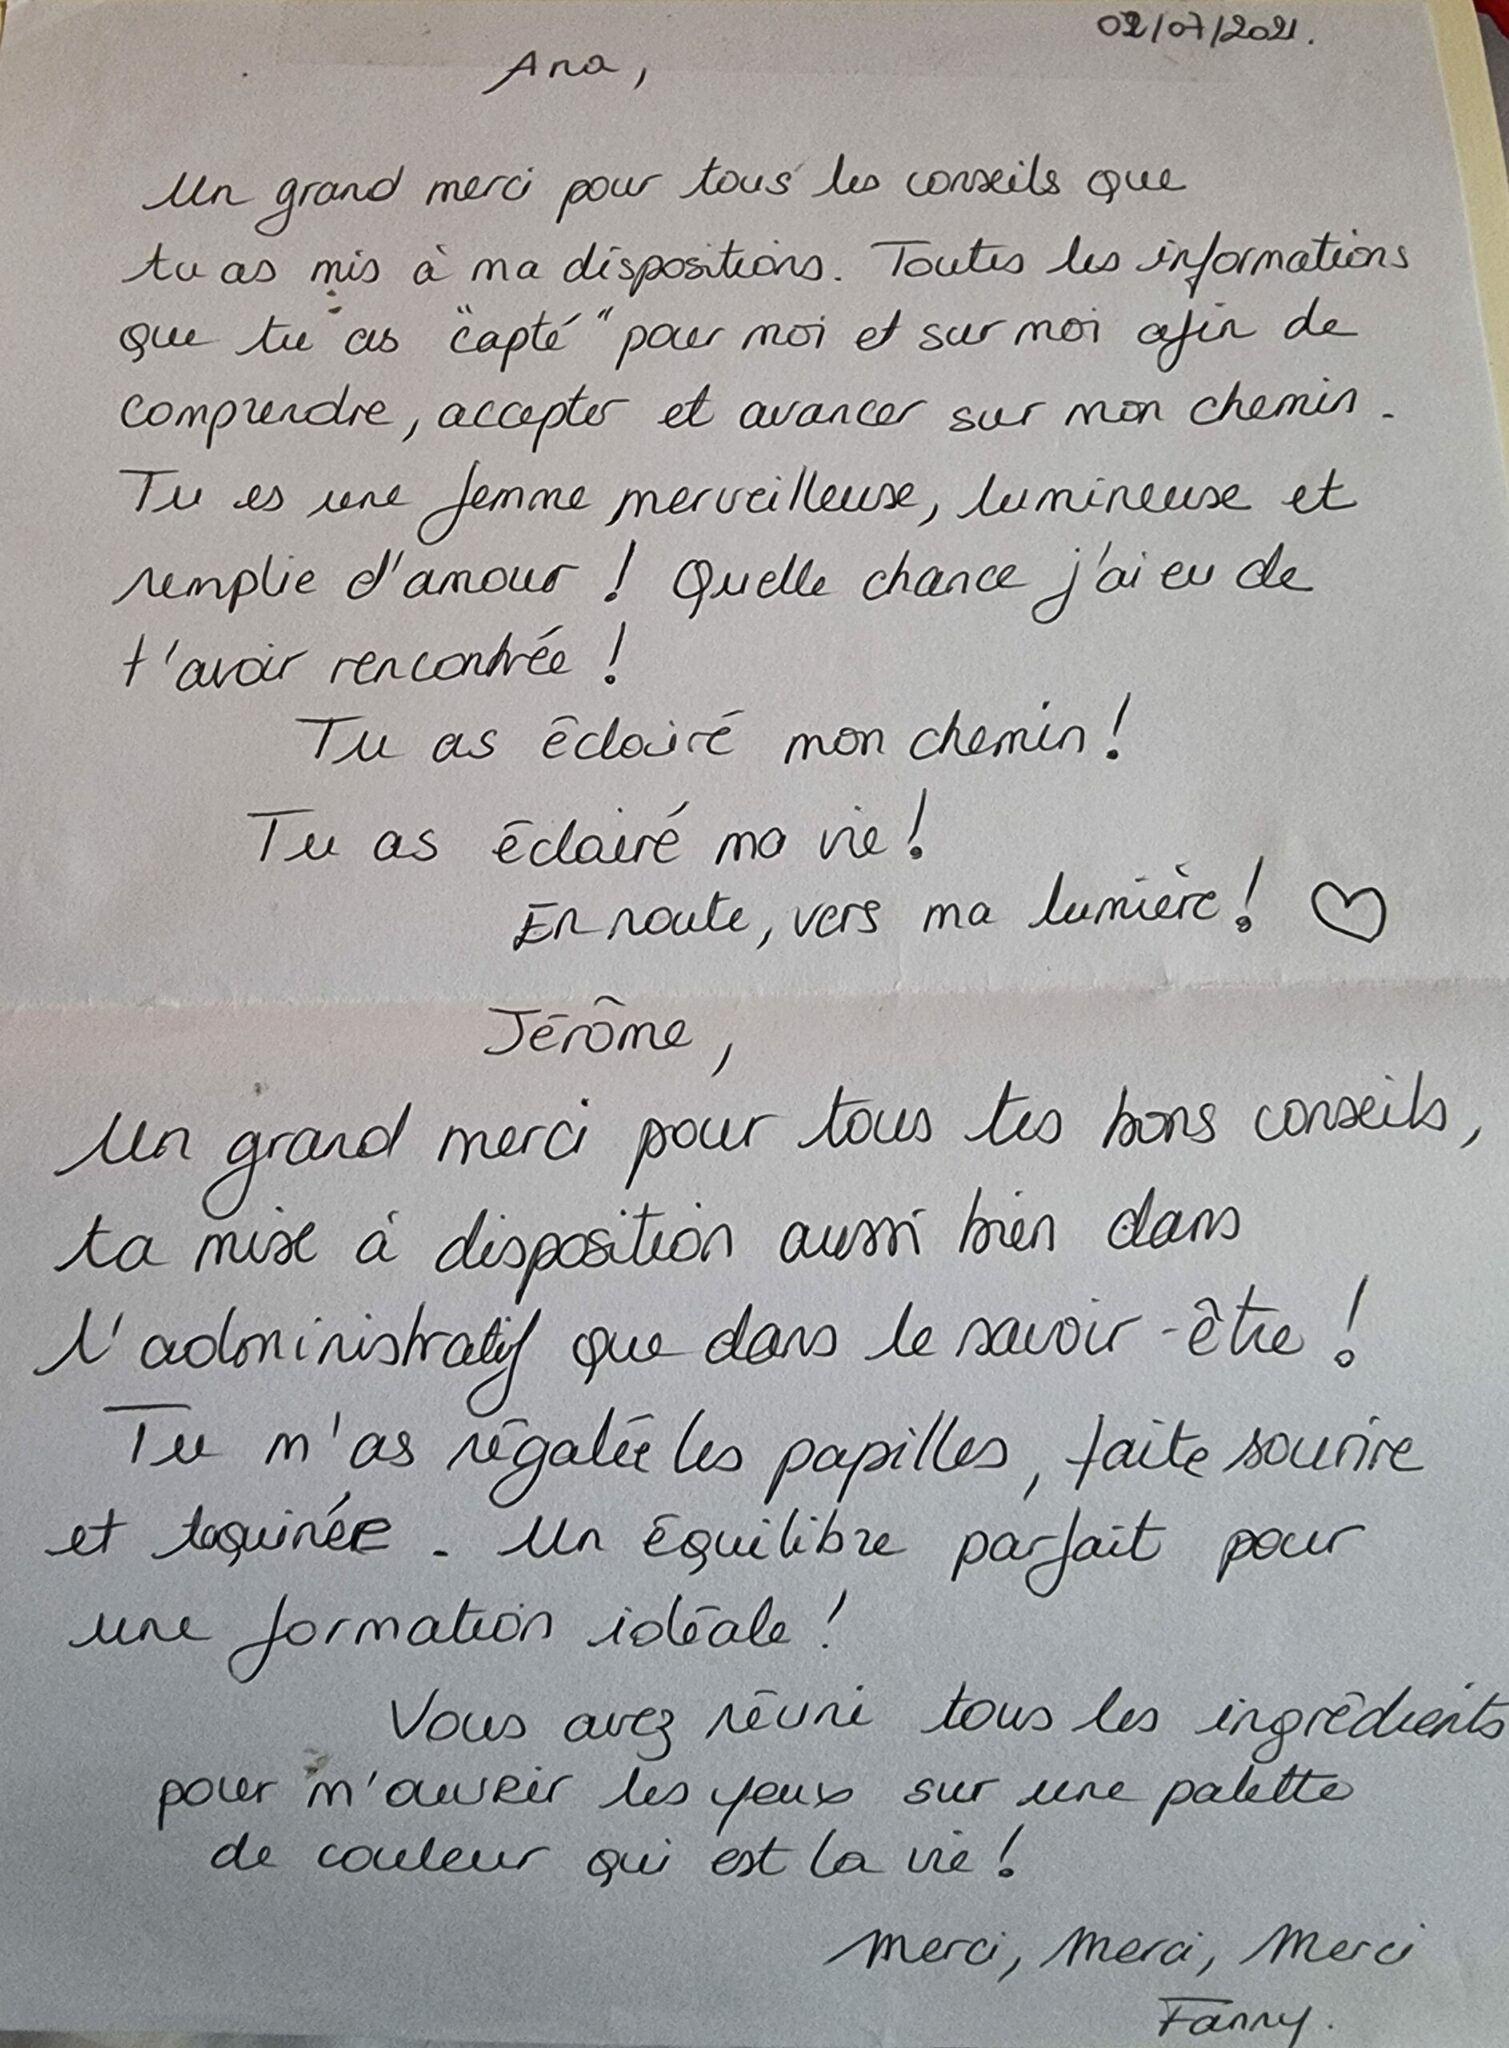 02/07/2021.
Ana,
Un grand merci pour tous les conseils que
tu as mis à ma dispositions. Toutes les informations
que tu as "capté" pour moi et sur moi afin de
comprendre, accepter et avancer sur mon chemin.
Tu es une femme merveilleuse, lumineuse et
remplie d'amour ! Quelle chance j'ai eu de
t'avoir rencontrée !
Tu as éclairé mon chemin !
Tu as éclairé ma vie !
En route, vers ma lumière ! ♡
Jérôme,
Un grand merci pour tous tes bons conseils,
ta mise à disposition aussi bien dans
l'administratif que dans le savoir-être !
Tu m'as régalée les papilles, faite sourire
et taquinée. Un équilibre parfait pour
une formation idéale !
Vous avez réuni tous les ingrédients
pour m'ouvrir les yeux sur une palette
de couleur qui est la vie !
Merci, Merci, Merci
Fanny.